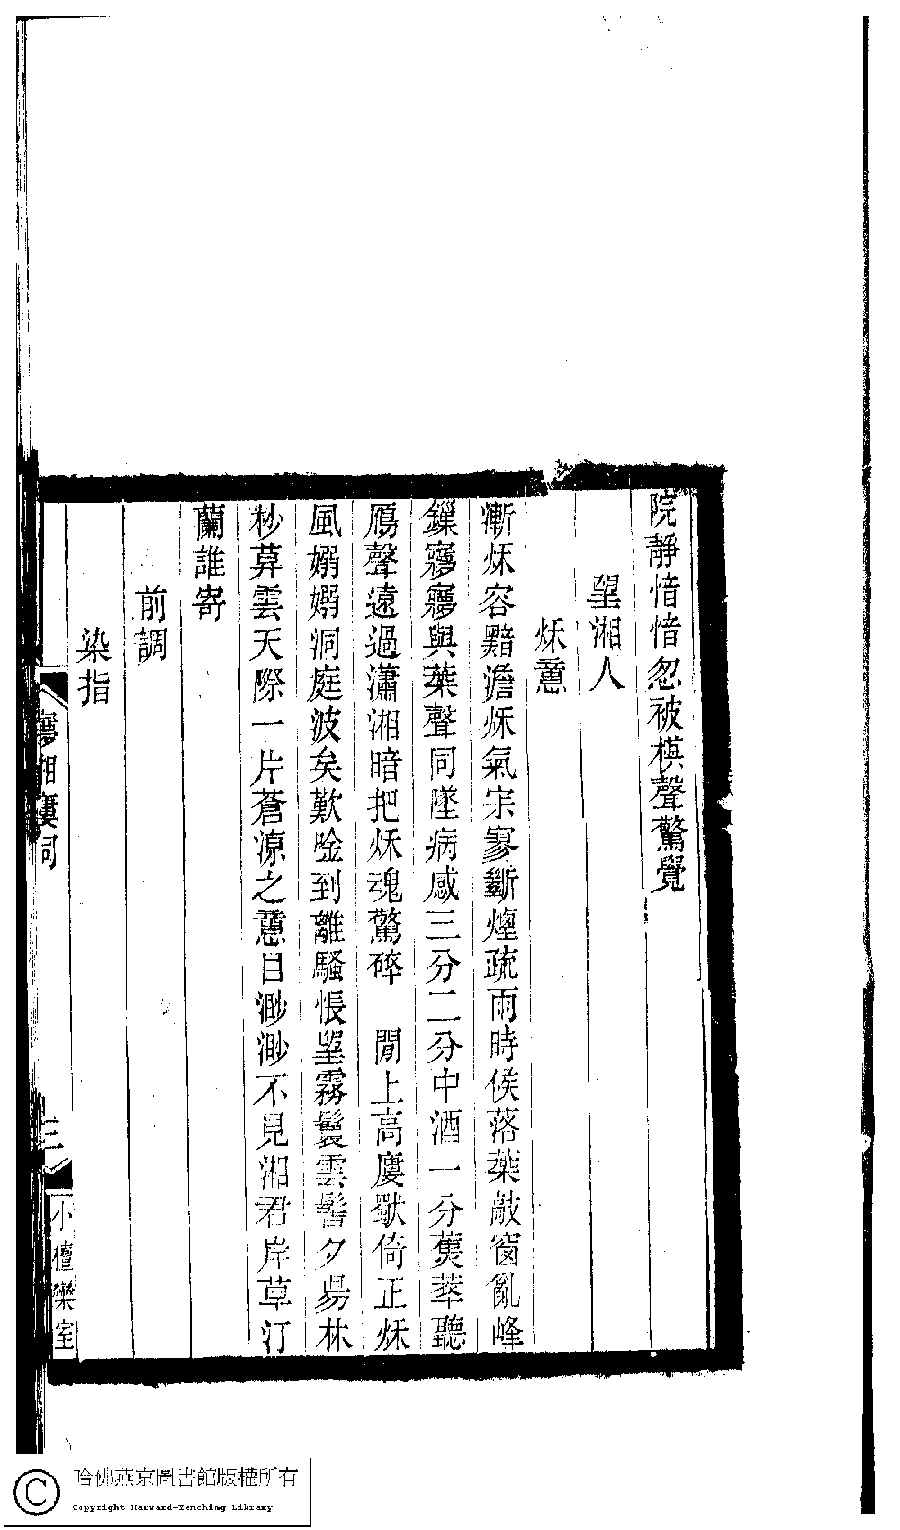 院靜愔愔忽被棋聲驚覺
望湘人
秌意
漸秌容黯澹秌氣宋寥斷煙疏雨時候落葉敲窗亂峰
鏁寱寱與葉聲同墜病感三分二分中酒一分蕉萃聽
鴈聲遠過瀟湘暗把秌魂驚碎　閒上高廔獨倚正秌
風嫋嫋洞庭波矣歎唫到離騷悵望霧鬟雲髻夕昜林
杪莫雲天際一片蒼涼之意目渺渺不見湘君岸草汀
蘭誰寄
前調
染指
寱湘廔詞
三
小檀欒室
哈佛燕京圖書館版權所有
Copyright Harvard-Yenching Library